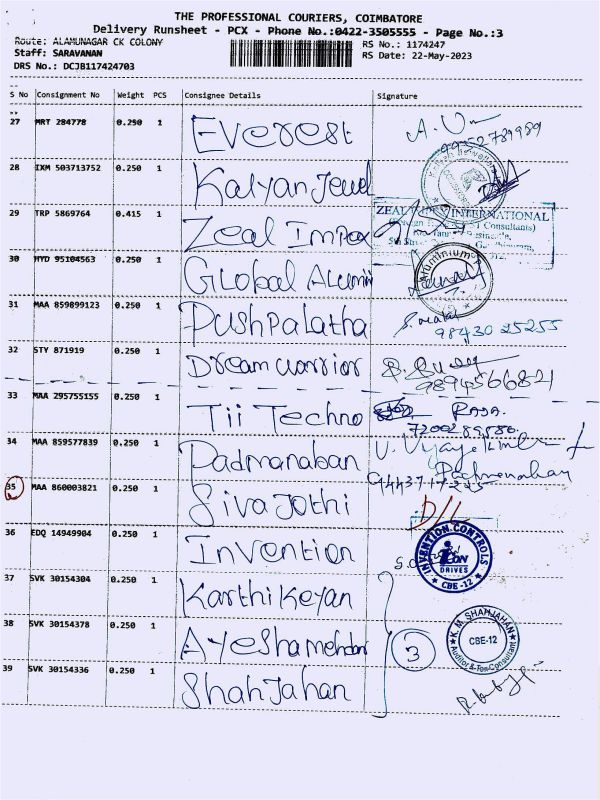 THE PROFESSIONAL COURIERS, COIMBATORE
Delivery Runsheet - PCX - Phone No.:0422-3505555 - Page No.:3
Route: ALAMUNAGAR CK COLONY RS No.: 1174247
Staff: SARAVANAN RS Date: 22-May-2023
DRS No.: DCJB117424703
S No Consignment No Weight PCS Consignee Details Signature
27 MRT 284778 0.250 1 Everest
9952789989
28 IXM 503713752 0.250 1 Kalyan Jewel
29 TRP 5869764 0.415 1 Zeal Impex
ZEAL INTERNATIONAL
Consultants)
30 HYD 95104563 0.250 1 Global Alumin
Aluminium
31 MAA 859899123 0.250 1 Pushpalatha
98430 25255
32 STY 871919 0.250 1 Dream warrior
9894566821
33 MAA 295755155 0.250 1 Tii Techno RAJA.
7200289580.
34 MAA 859577839 0.250 1 Padmanaban
35 MAA 860003821 0.250 1 Siva Jothi D/L
36 EDQ 14949904 0.250 1 Invention
INVENTION CONTROLS
icon
DRIVES
CBE-12
37 SVK 30154304 0.250 1 Karthikeyan
38 SVK 30154378 0.250 1 Ayeshamehdar 3
K.M. SHAHJAHAN
CBE-12
Auditor & Tax Consultant
39 SVK 30154336 0.250 1 Shah Jahan